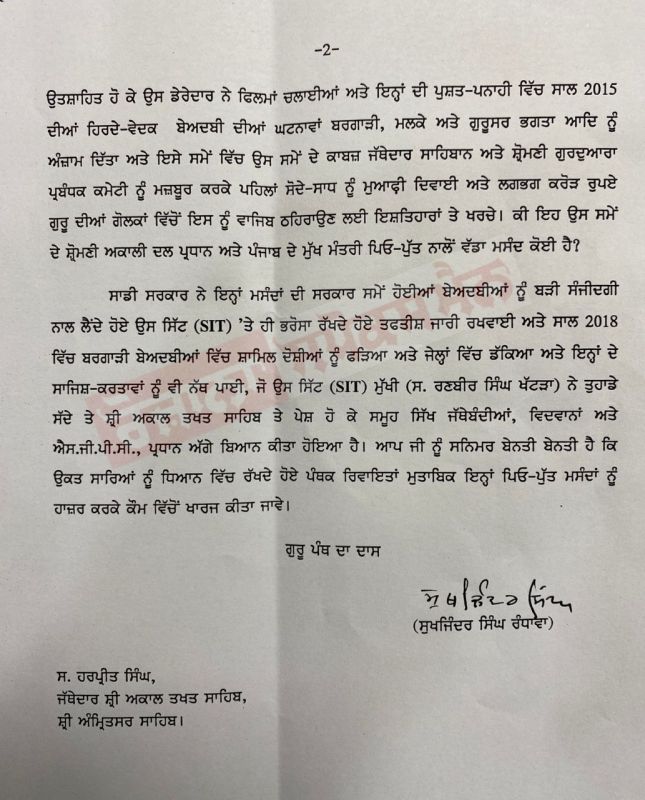 -2-
ਉਤਸ਼ਾਹਿਤ ਹੋ ਕੇ ਉਸ ਡੇਰੇਦਾਰ ਨੇ ਫਿਲਮਾਂ ਚਲਾਈਆਂ ਅਤੇ ਇਨ੍ਹਾਂ ਦੀ ਪੁਸ਼ਤ-ਪਨਾਹੀ ਵਿੱਚ ਸਾਲ 2015
ਦੀਆਂ ਹਿਰਦੇ-ਵੇਦਕ ਬੇਅਦਬੀ ਦੀਆਂ ਘਟਨਾਵਾਂ ਬਰਗਾੜੀ, ਮਲਕੇ ਅਤੇ ਗੁਰੂਸਰ ਭਗਤਾ ਆਦਿ ਨੂੰ
ਅੰਜ਼ਾਮ ਦਿੱਤਾ ਅਤੇ ਇਸੇ ਸਮੇਂ ਵਿੱਚ ਉਸ ਸਮੇਂ ਦੇ ਕਾਬਜ਼ ਜੱਥੇਦਾਰ ਸਾਹਿਬਾਨ ਅਤੇ ਸ਼੍ਰੋਮਣੀ ਗੁਰਦੁਆਰਾ
ਪ੍ਰਬੰਧਕ ਕਮੇਟੀ ਨੂੰ ਮਜ਼ਬੂਰ ਕਰਕੇ ਪਹਿਲਾਂ ਸੋਦੇ-ਸਾਧ ਨੂੰ ਮੁਆਫ਼ੀ ਦਿਵਾਈ ਅਤੇ ਲਗਭਗ ਕਰੋੜ ਰੁਪਏ
ਗੁਰੂ ਦੀਆਂ ਗੋਲਕਾਂ ਵਿੱਚੋਂ ਇਸ ਨੂੰ ਵਾਜਿਬ ਠਹਿਰਾਉਣ ਲਈ ਇਸ਼ਤਿਹਾਰਾਂ ਤੇ ਖਰਚੇ। ਕੀ ਇਹ ਉਸ ਸਮੇਂ
ਦੇ ਸ਼੍ਰੋਮਣੀ ਅਕਾਲੀ ਦਲ ਪ੍ਰਧਾਨ ਅਤੇ ਪੰਜਾਬ ਦੇ ਮੁੱਖ ਮੰਤਰੀ ਪਿਓ-ਪੁੱਤ ਨਾਲੋਂ ਵੱਡਾ ਮਸੰਦ ਕੋਈ ਹੈ?
ਸਾਡੀ ਸਰਕਾਰ ਨੇ ਇਨ੍ਹਾਂ ਮਸੰਦਾਂ ਦੀ ਸਰਕਾਰ ਸਮੇਂ ਹੋਈਆਂ ਬੇਅਦਬੀਆਂ ਨੂੰ ਬੜੀ ਸੰਜੀਦਗੀ
ਨਾਲ ਲੈਂਦੇ ਹੋਏ ਉਸ ਸਿੱਟ (SIT) 'ਤੇ ਹੀ ਭਰੋਸਾ ਰੱਖਦੇ ਹੋਏ ਤਫਤੀਸ਼ ਜਾਰੀ ਰਖਵਾਈ ਅਤੇ ਸਾਲ 2018
ਵਿੱਚ ਬਰਗਾੜੀ ਬੇਅਦਬੀਆਂ ਵਿੱਚ ਸ਼ਾਮਿਲ ਦੋਸ਼ੀਆਂ ਨੂੰ ਫੜਿਆ ਅਤੇ ਜੇਲ੍ਹਾਂ ਵਿੱਚ ਡੱਕਿਆ ਅਤੇ ਇਨ੍ਹਾਂ ਦੇ
ਸਾਜਿਸ਼-ਕਰਤਾਵਾਂ ਨੂੰ ਵੀ ਨੱਥ ਪਾਈ, ਜੋ ਉਸ ਸਿੱਟ (SIT) ਮੁੱਖੀ (ਸ. ਰਣਬੀਰ ਸਿੰਘ ਖੱਟੜਾ) ਨੇ ਤੁਹਾਡੇ
ਸੱਦੇ ਤੇ ਸ਼੍ਰੀ ਅਕਾਲ ਤਖਤ ਸਾਹਿਬ ਤੇ ਪੇਸ਼ ਹੋ ਕੇ ਸਮੂਹ ਸਿੱਖ ਜੱਥੇਬੰਦੀਆਂ, ਵਿਦਵਾਨਾਂ ਅਤੇ
ਐਸ.ਜੀ.ਪੀ.ਸੀ., ਪ੍ਰਧਾਨ ਅੱਗੇ ਬਿਆਨ ਕੀਤਾ ਹੋਇਆ ਹੈ। ਆਪ ਜੀ ਨੂੰ ਸਨਿਮਰ ਬੇਨਤੀ ਬੇਨਤੀ ਹੈ ਕਿ
ਉਕਤ ਸਾਰਿਆਂ ਨੂੰ ਧਿਆਨ ਵਿੱਚ ਰੱਖਦੇ ਹੋਏ ਪੰਥਕ ਰਿਵਾਇਤਾਂ ਮੁਤਾਬਿਕ ਇਨ੍ਹਾਂ ਪਿਓ-ਪੁੱਤ ਮਸੰਦਾਂ ਨੂੰ
ਹਾਜ਼ਰ ਕਰਕੇ ਕੌਮ ਵਿੱਚੋਂ ਖਾਰਜ ਕੀਤਾ ਜਾਵੇ।
ਗੁਰੂ ਪੰਥ ਦਾ ਦਾਸ
ਸੁਖਜਿੰਦਰ ਸਿੰਘ
(ਸੁਖਜਿੰਦਰ ਸਿੰਘ ਰੰਧਾਵਾ)
ਸ. ਹਰਪ੍ਰੀਤ ਸਿੰਘ,
ਜੱਥੇਦਾਰ ਸ਼੍ਰੀ ਅਕਾਲ ਤਖਤ ਸਾਹਿਬ,
ਸ਼੍ਰੀ ਅੰਮ੍ਰਿਤਸਰ ਸਾਹਿਬ।